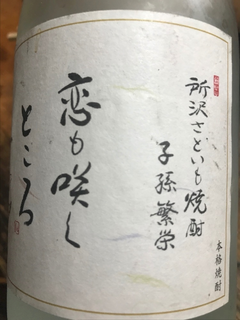 所沢さといも焼酎
子孫繁栄
本格焼酎
恋も咲く
ところ